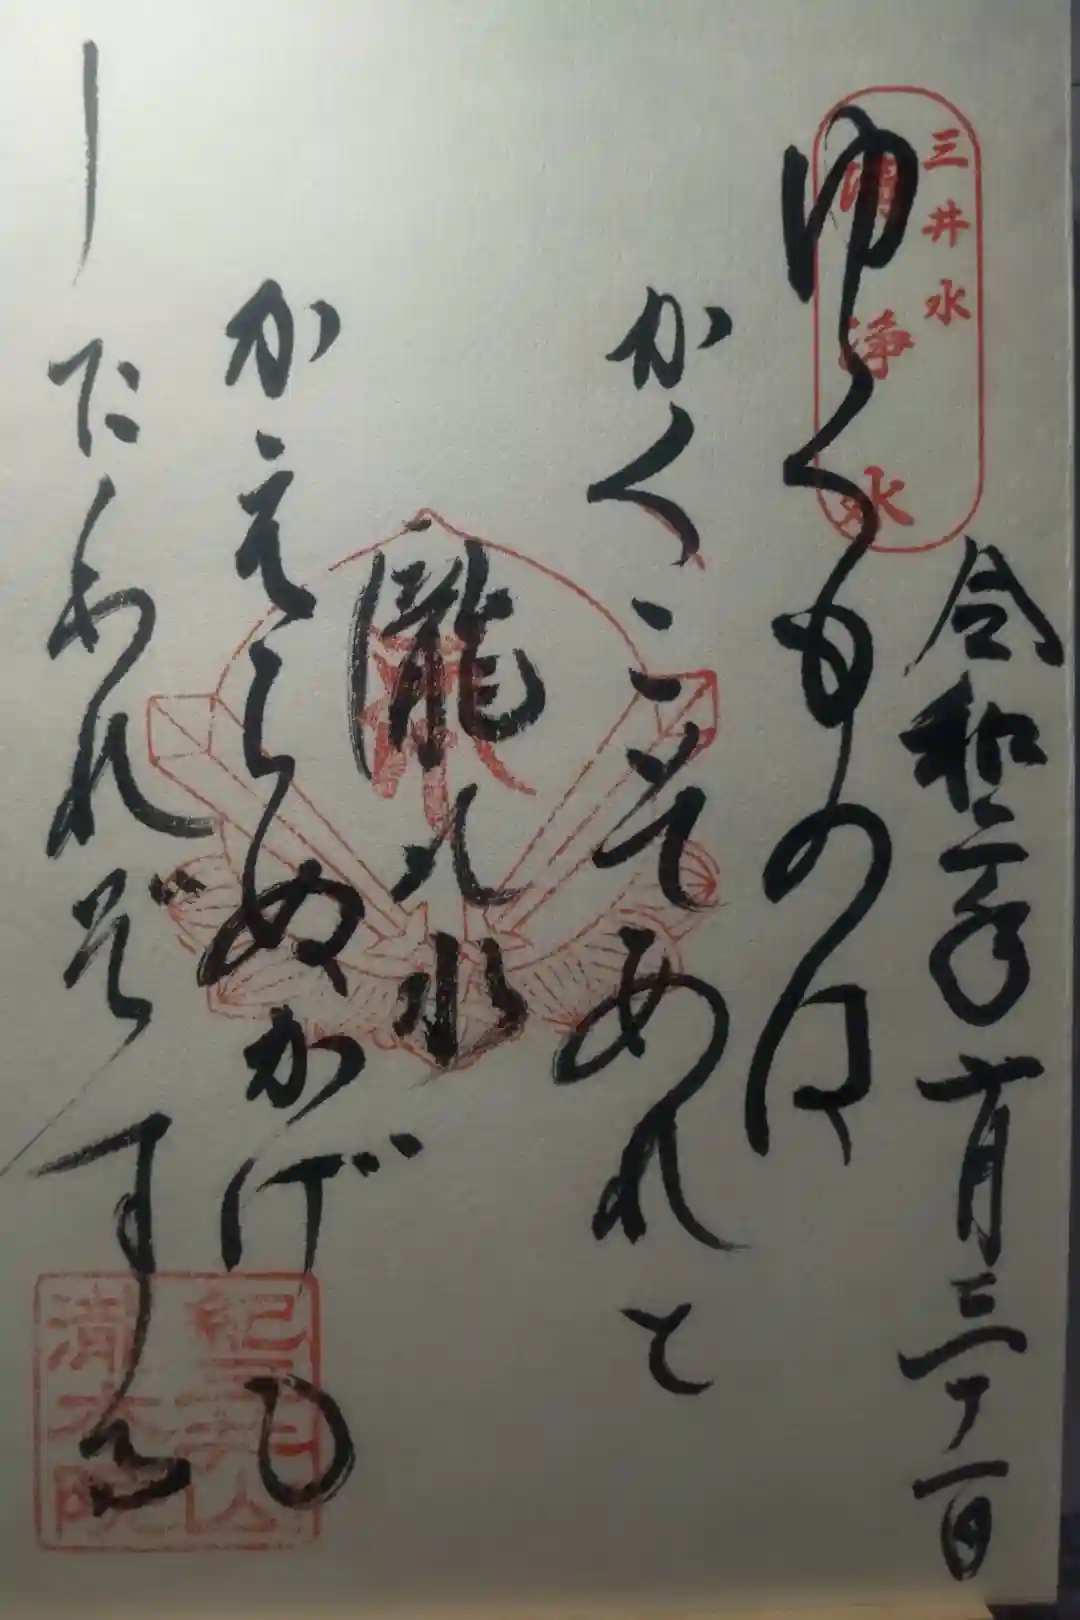 三井水
清浄水
令和二年十月三十一日
ゆくものは
かくこそあれと
瀧の水
かえらぬかげの
したわれぞする
紀三井山